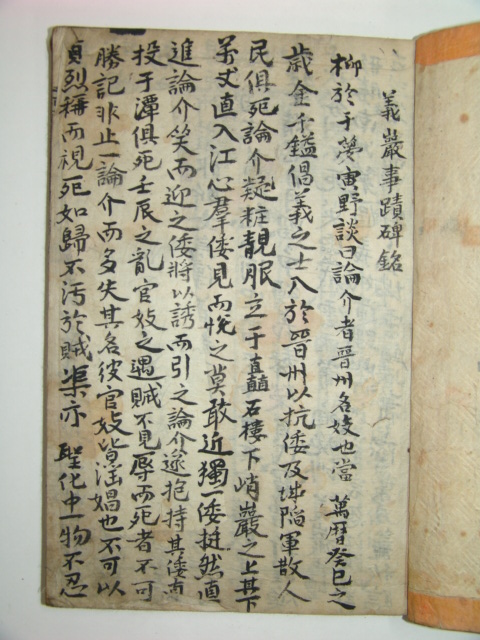 義巖事蹟碑銘
柳於于夢寅野談曰論介者晉州名妓也當 萬曆癸巳之
歲金千鎰倡義之士入於晉州以抗倭及城陷軍散人
民俱死論介凝粧靚服立于矗石樓下峭巖之上其下
萬丈直入江心羣倭見而悅之莫敢近獨一倭挺然直
進論介笑而迎之倭將以誘而引之論介遂抱持其倭直
投于潭俱死壬辰之亂官妓之遇賊不見辱而死者不可
勝記非止一論介而多失其名彼官妓皆淫娼也不可以
貞烈稱而視死如歸不汚於賊渠亦 聖化中一物不忍